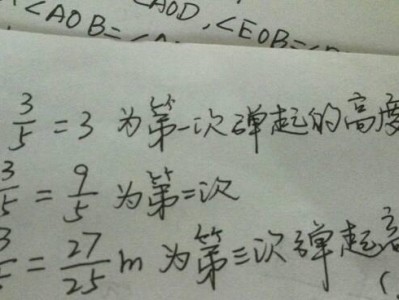 ∠AOD,
∠AOB=∠A ∠EOB=
3/5 = 3 为第一次弹起的高度
3/5 = 9/5 为第二次
3/5 = 27/25 m 为第三次弹起高